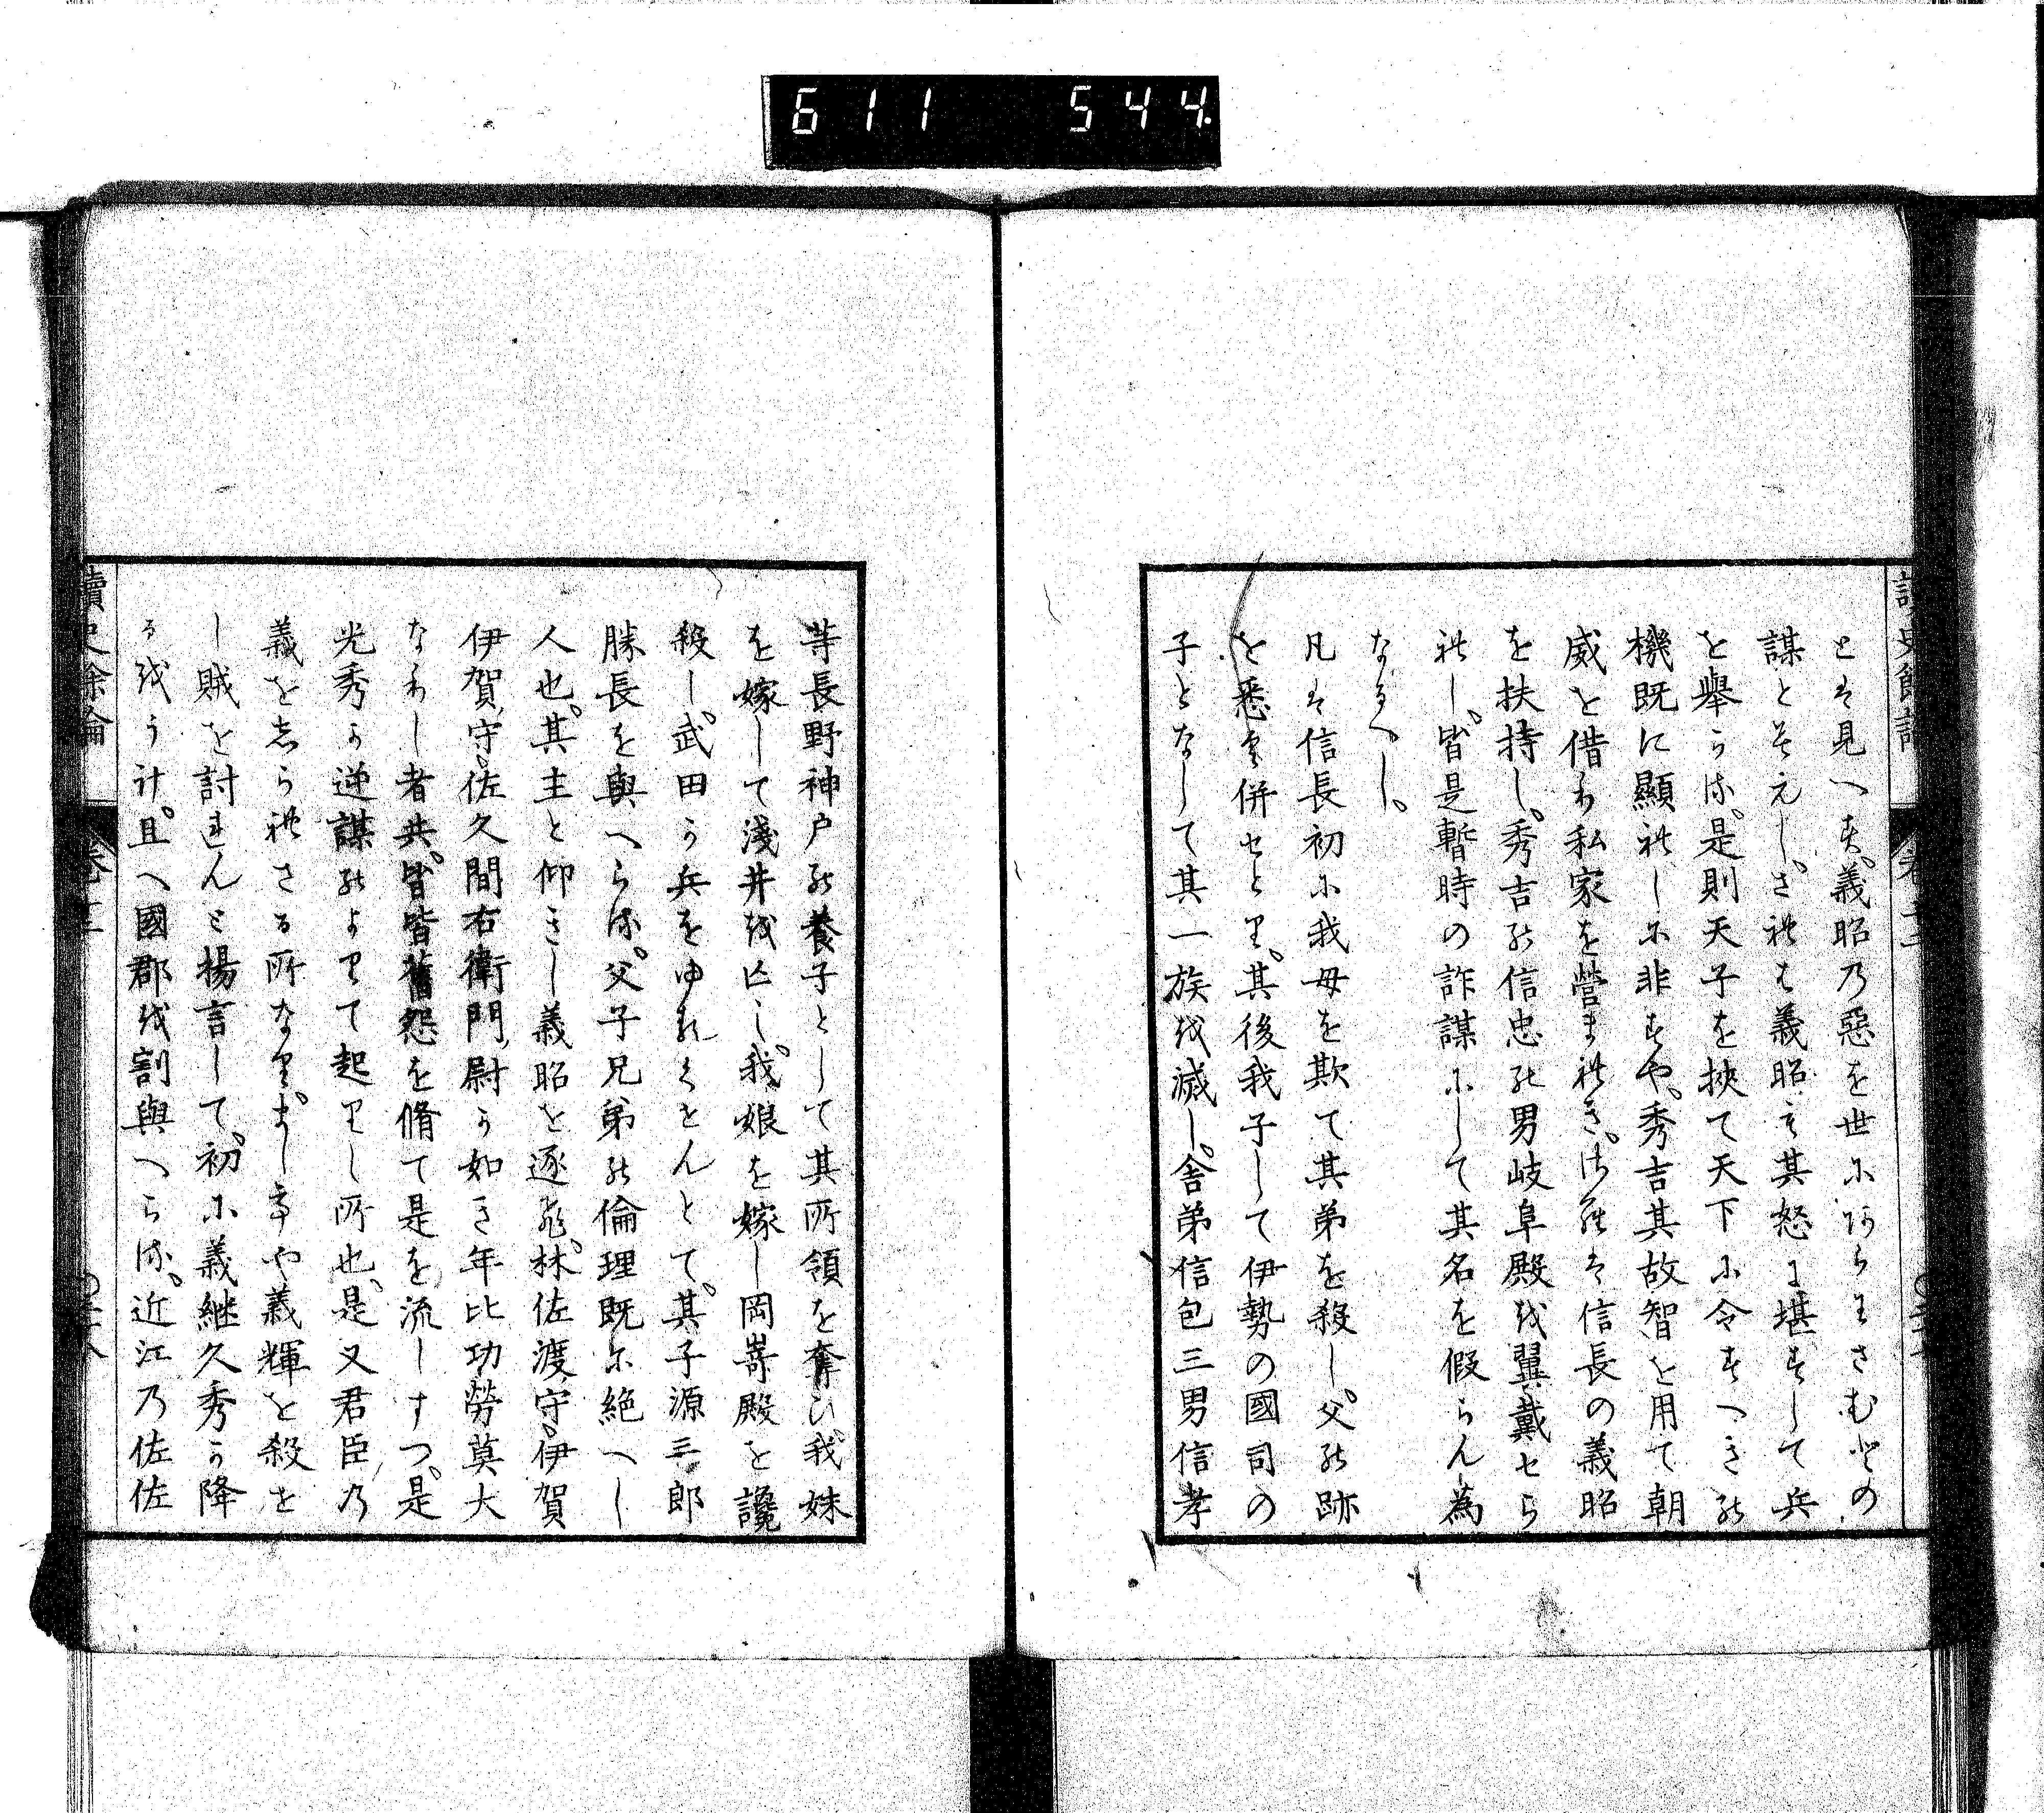 611 544
とは見へす。義昭乃惡を世にあらはさむとの
謀とそみえし。されは義昭も其怒に堪すして兵
を舉らる。是則天子を挾て天下に令すへきの
機既に顯れしに非すや。秀吉其故智を用て朝
威を借り私家を營まれき。されは信長の義昭
を扶持し。秀吉の信忠の男岐阜殿を翼戴せら
れし。皆是暫時の詐謀にして其名を假らん為
なるへし。
凡は信長初に我母を欺て其弟を殺し。父の跡
を悉く併せとり。其後我子して伊勢の國司の
子となして其一族を滅し。舎弟信包三男信孝
等長野神戸の養子として其所領を奪ひ。我妹
を嫁して淺井を亡し。我娘を嫁し岡嵜殿を讒
殺し。武田か兵をゆるくせんとて。其子源三郎
勝長を與へらる。父子兄弟の倫理既に絶へし
人也。其主と仰きし義昭を逐ひ。林佐渡守。伊賀
伊賀守。佐久間右衛門尉か如き年比功勞莫大
なりし者共。皆皆舊怨を脩て是を流しすつ。是
光秀か逆謀のよりて起りし所也。是又君臣乃
義をしられさる所なり。ましてや義輝を殺せ
し賊を討れんと揚言して。初に義継久秀か降
るをうけ。且へ國郡を割與へらる。近江乃佐佐
讀史餘論 卷十二